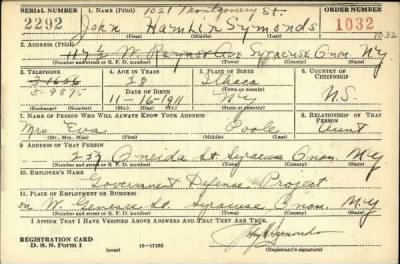 SERIAL NUMBER 1. NAME (Print) 1021 Montgomery St. ORDER NUMBER
2292 John Hamlin Symonds 1032
(First) (Middle) (Last)
2. ADDRESS (Print) 1032
W. Raynor Ave Syracuse Onon. N.Y
(Number and street or R. F. D. number) (Town) (County) (State)
3. TELEPHONE 4. AGE IN YEARS 5. PLACE OF BIRTH 6. COUNTRY OF CITIZENSHIP
28 Ithaca
5-9875 DATE OF BIRTH (Town or county)
11-16-1911 N.Y U.S.
(Exchange) (Number) (Mo.) (Day) (Yr.) (State or country)
7. NAME OF PERSON WHO WILL ALWAYS KNOW YOUR ADDRESS 8. RELATIONSHIP OF THAT PERSON
Mrs Eva Poole Aunt
(Mr., Mrs., Miss) (First) (Middle) (Last)
9. ADDRESS OF THAT PERSON
237 Oneida St Syracuse Onon. N.Y
(Number and street or R. F. D. number) (Town) (County) (State)
10. EMPLOYER'S NAME
Government Defense Project
11. PLACE OF EMPLOYMENT OR BUSINESS
on W. Genesee St. Syracuse Onon. N.Y
(Number and street or R. F. D. number) (Town) (County) (State)
I AFFIRM THAT I HAVE VERIFIED ABOVE ANSWERS AND THAT THEY ARE TRUE.
REGISTRATION CARD
D. S. S. Form 1 (over) 16-17105 (Registrant's signature)